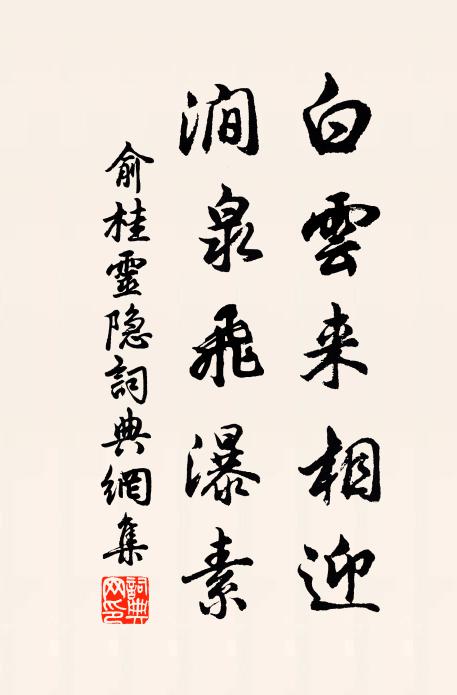 白雲来相迎
澗泉飛瀑素
俞桂靈隐詞典網集
詞典网印